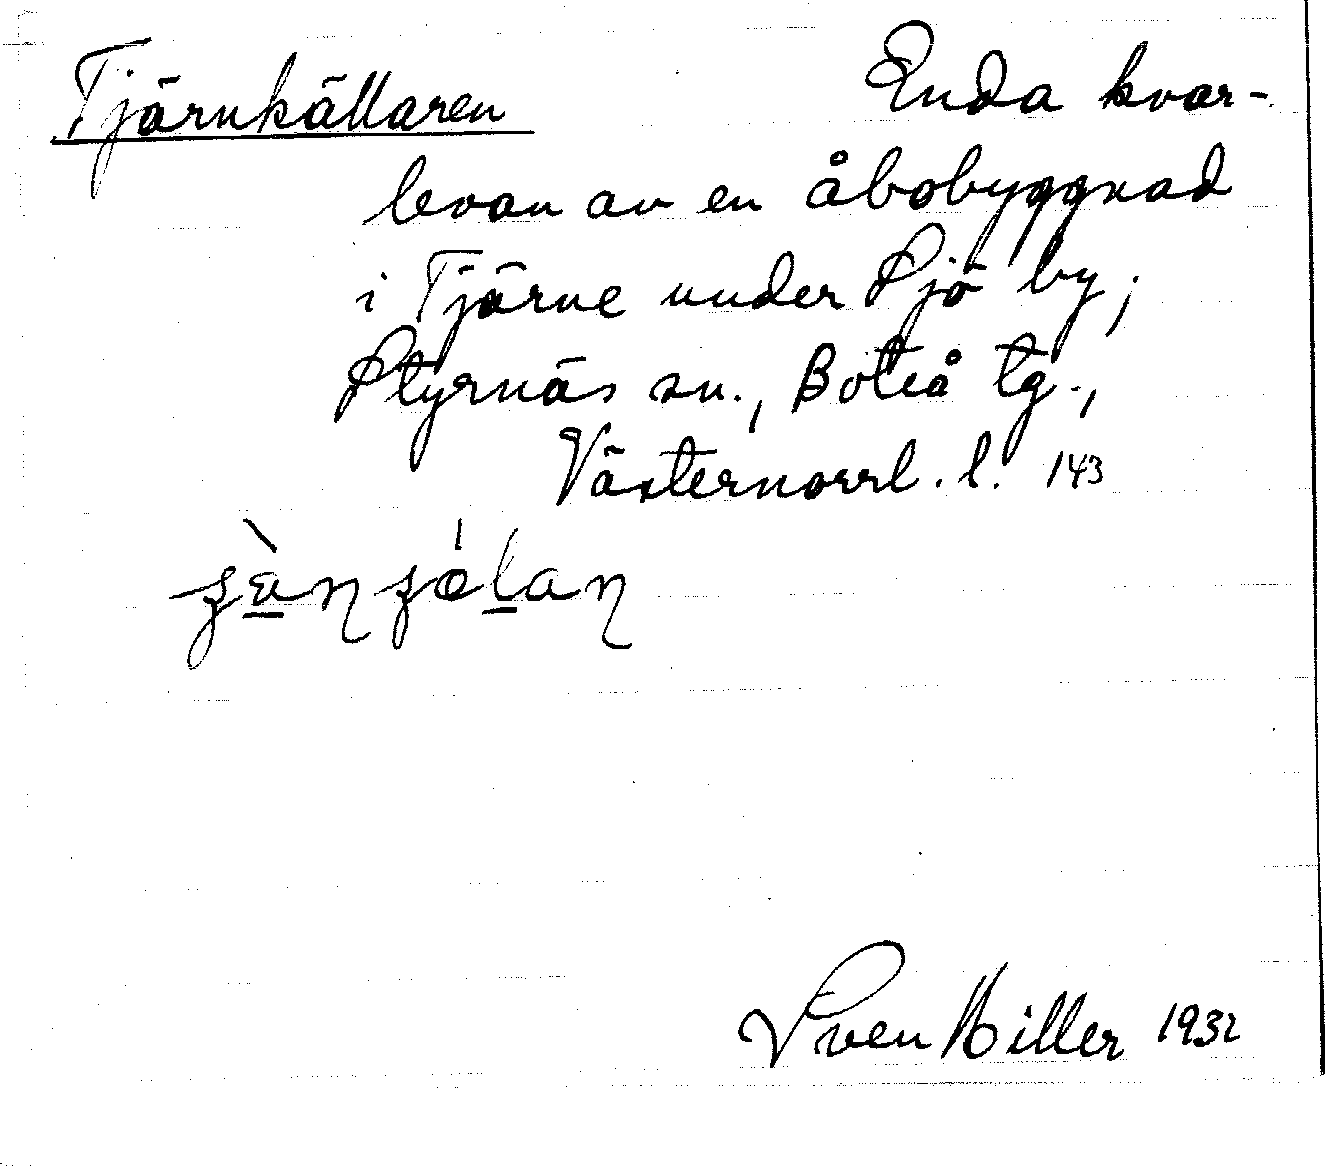 Tjärnkällaren Enda kvar-
levan av en åbobyggnad
i Tjärne under Sjö by;
Styrnäs sn., Boteå tg.,
Västernorrl. l. 143
Sven Hiller 1932